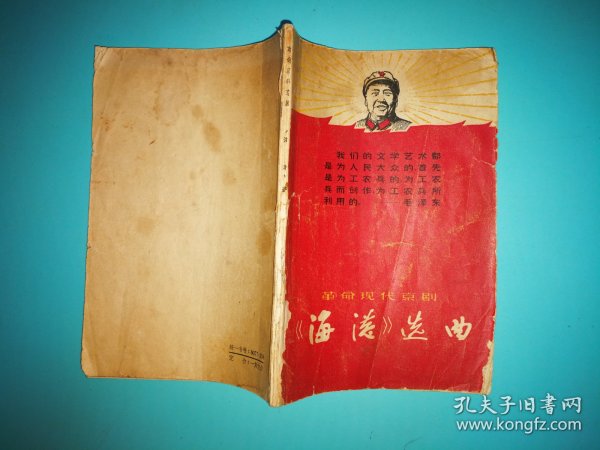 我们的文学艺术都
是为人民大众的,首先
是为工农兵的,为工农
兵而创作,为工农兵所
利用的。 毛泽东
革命现代京剧
《海港》选曲
孔夫子旧书网
www.kongfz.com